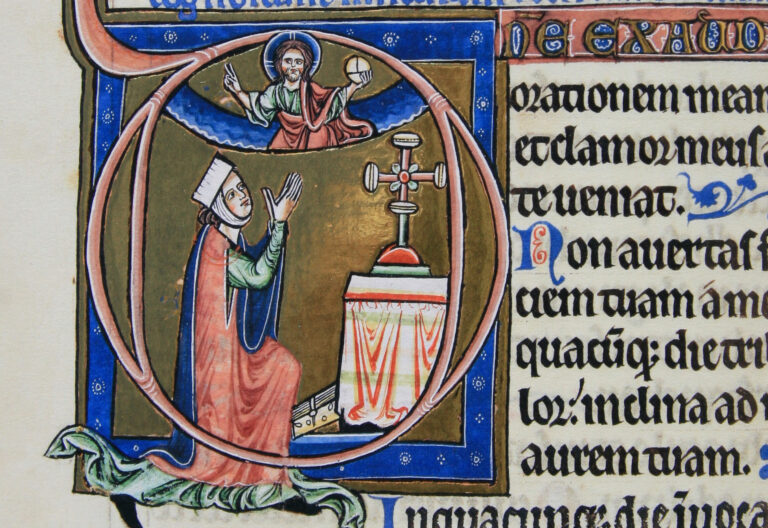 DN̄E EXAUD
orationem meam
et clamor meus a
te ueniat.
Non auertas f
ciem tuam á me
quacūq; die tri
lor: inclina ad
aurem tuam.
In quacunqe. die īuoca